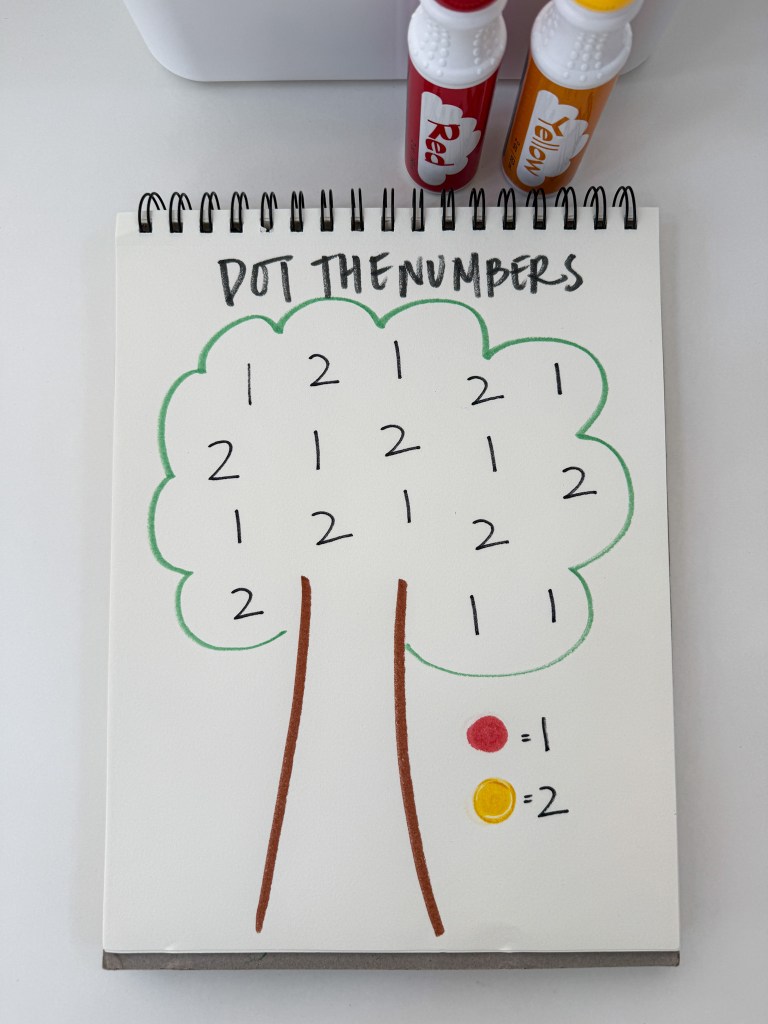 Red
Yellow
DOT THE NUMBERS
1 2 1 2 1
2 1 2 1 2
1 2 1 2
2 1 1
= 1
= 2